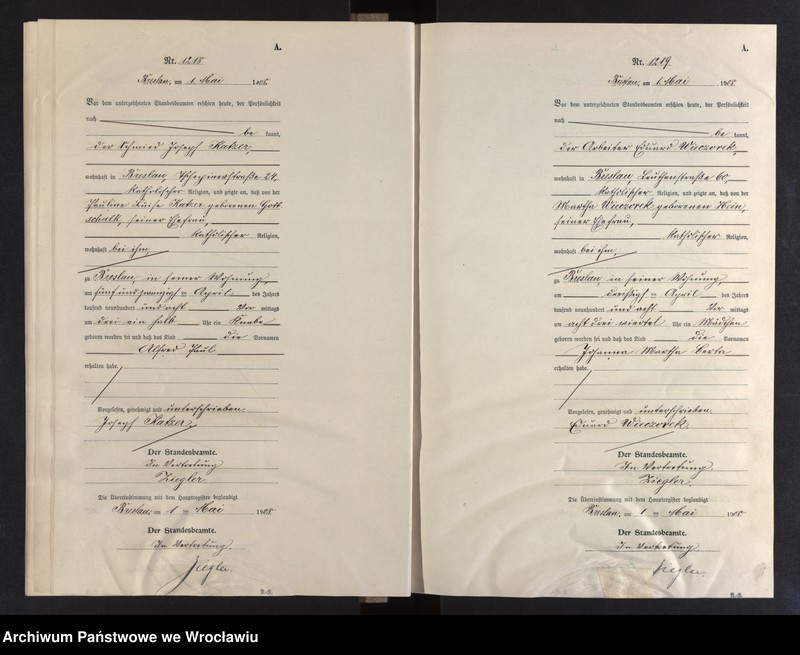 A.
Nr. 1218.
Breslau, am 1. Mai 1908.
Vor dem unterzeichneten Standesbeamten erschien heute, der Persönlichkeit
nach
be kannt,
der Schmied Joseph Katzer,
wohnhaft in Breslau, 24,
katholischer Religion, und zeigte an, daß von der
Pauline Luise Katzer geborenen Gott-
schalk, seiner Ehefrau,
katholischer Religion,
wohnhaft bei ihm,
zu Breslau, in seiner Wohnung,
am fünfundzwanzigsten April des Jahres
tausend neunhundert und acht Vor mittags
um drei ein halb Uhr ein Knabe
geboren worden sei und daß das Kind die Vornamen
Alfred Paul
erhalten habe.
Vorgelesen, genehmigt und unterschrieben.
Joseph Katzer.
Der Standesbeamte.
In Vertretung
Ziegler.
Die Übereinstimmung mit dem Hauptregister beglaubigt
Breslau, am 1 ten Mai 1908
Der Standesbeamte.
In Vertretung.
Ziegler
A.
Nr. 1219.
Breslau, am 1. Mai 1908.
Vor dem unterzeichneten Standesbeamten erschien heute, der Persönlichkeit
nach
be kannt,
der Arbeiter Eduard Wieczorek,
wohnhaft in Breslau, Leuthenstraße 60
katholischer Religion, und zeigte an, daß von der
Martha Wieczorek geborenen
seiner Ehefrau,
katholischer Religion,
wohnhaft bei ihm,
zu Breslau, in seiner Wohnung,
am dreißigsten April des Jahres
tausend neunhundert und acht Vor mittags
um acht drei viertel Uhr ein Mädchen
geboren worden sei und daß das Kind die Vornamen
Johanna Martha Berta
erhalten habe.
Vorgelesen, genehmigt und unterschrieben.
Eduard Wieczorek.
Der Standesbeamte.
In Vertretung.
Ziegler.
Die Übereinstimmung mit dem Hauptregister beglaubigt
Breslau, am 1 ten Mai 1908.
Der Standesbeamte.
In Vertretung
Ziegler.
Archiwum Państwowe we Wrocławiu